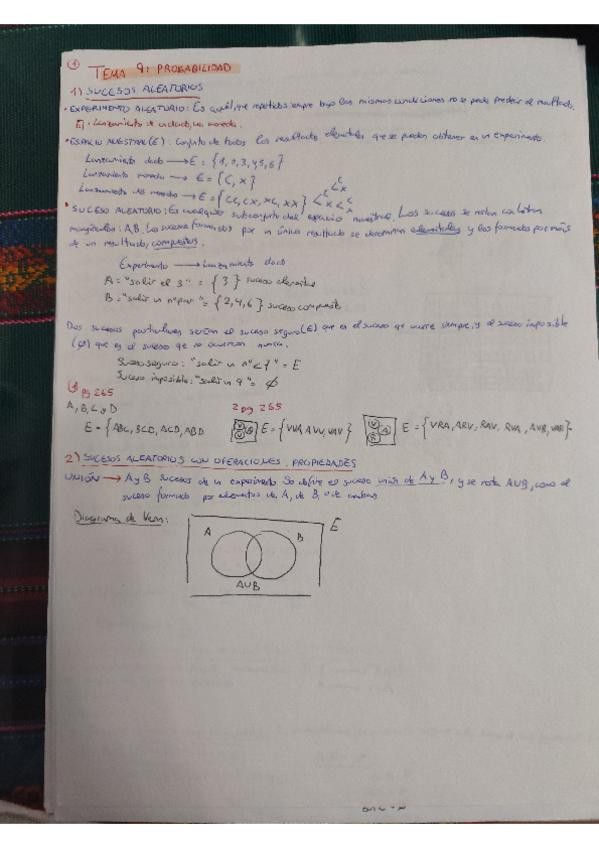 1
TEMA 9: PROBABILIDAD
1) SUCESOS ALEATORIOS
• EXPERIMENTO ALEATORIO: Es aquél, que repetido siempre bajo las mismas condiciones no se puede predecir el resultado.
Ej: Lanzamiento de un dado, una moneda.
• ESPACIO MUESTRAL (E): Conjunto de todos los resultados elementales que se pueden obtener en un experimento.
Lanzamiento dado → E = {1, 2, 3, 4, 5, 6}
Lanzamiento moneda → E = {C, X}
Lanzamiento dos monedas → E = {CC, CX, XC, XX}
C C X X C X
• SUCESO ALEATORIO: Es cualquier subconjunto del espacio muestral. Los sucesos se notan con letras
mayúsculas: A, B. Los sucesos formados por un único resultado se denominan elementales y los formados por más
de un resultado, compuestos.
Experimento → Lanzamiento dado
A = "salir el 3" = {3} suceso elemental
B = "salir un nº par" = {2, 4, 6} suceso compuesto
Dos sucesos particulares serían el suceso seguro (E) que es el suceso que ocurre siempre, y el suceso imposible
(∅) que es el suceso que no ocurrirá nunca.
Suceso seguro: "salir un nº < 7" = E
Suceso imposible: "salir un 9" = ∅
pg 265
A, B, C y D
2 pg 265
E = {ABC, BCD, ACD, ABD
E = {VVA, AVV, VAV}
E = {VRA, ARV, RAV, RVA, AVR, VAR}
2) SUCESOS ALEATORIOS CON OPERACIONES. PROPIEDADES
UNIÓN → A y B sucesos de un experimento. Se define el suceso unión de A y B, y se nota A∪B, como el
suceso formado por elementos de A, de B, o de ambos
Diagrama de Venn:
E
A
B
A∪B